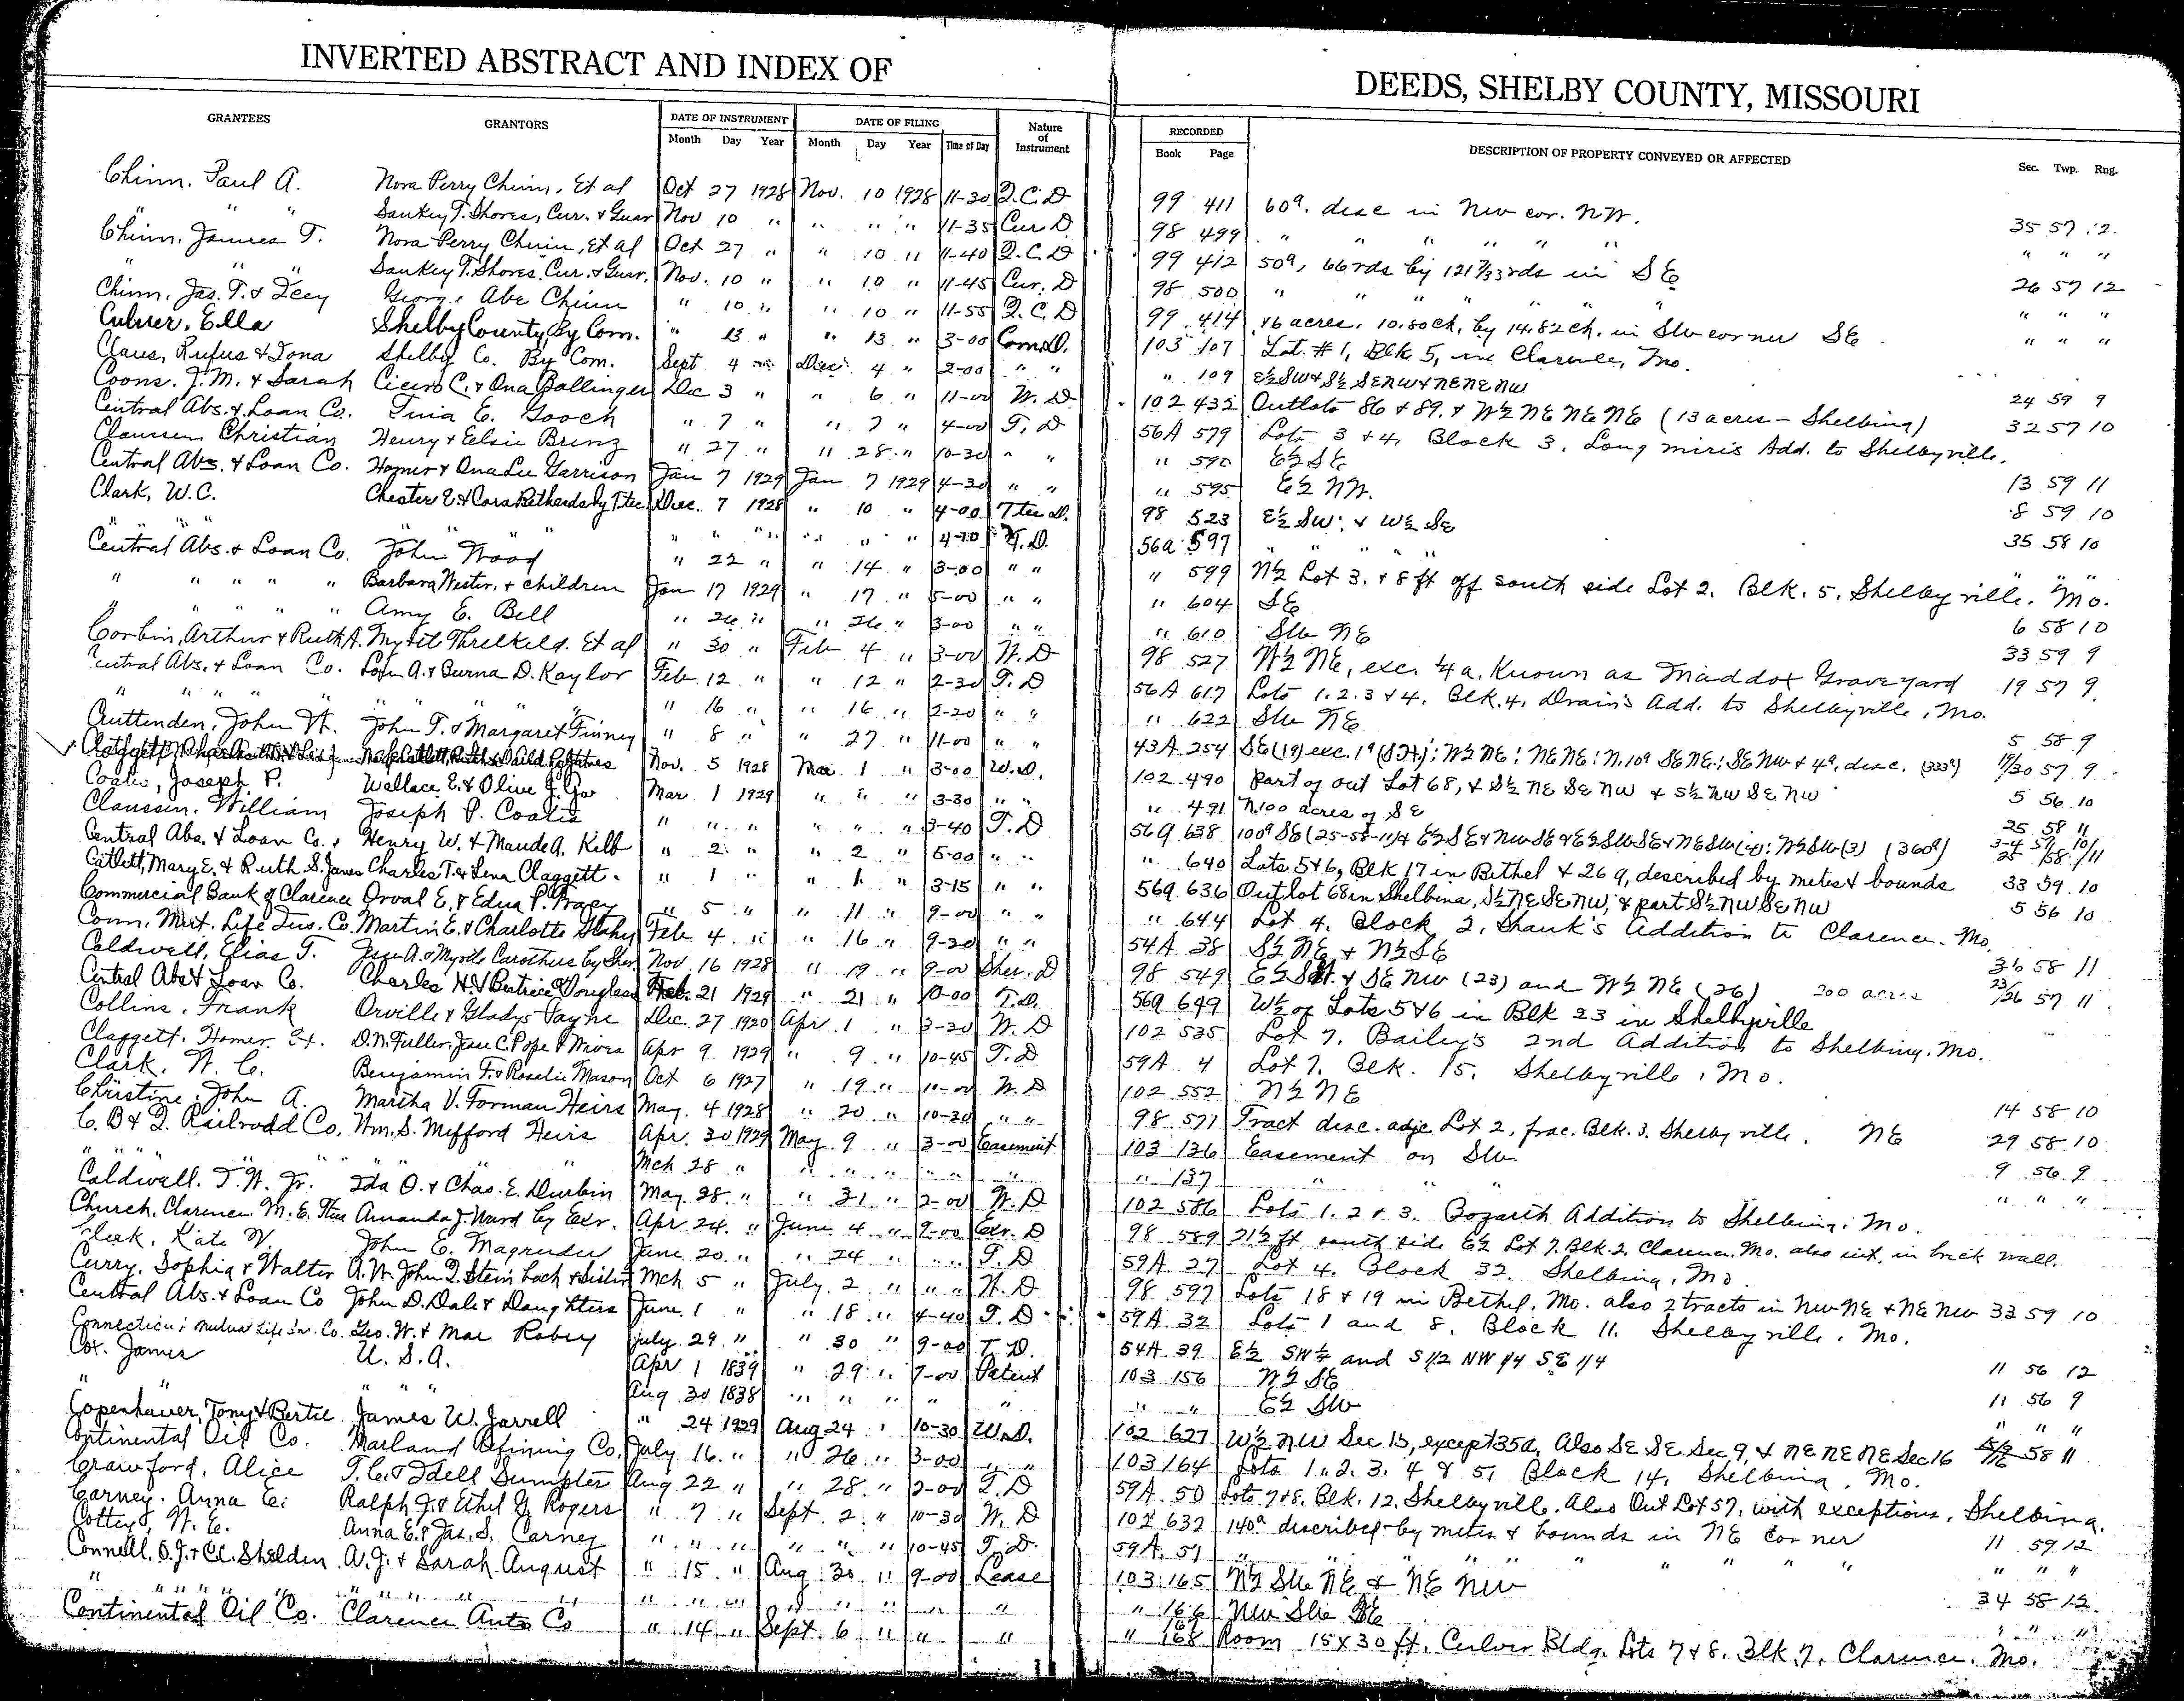 INVERTED ABSTRACT AND INDEX OF DEEDS, SHELBY COUNTY, MISSOURI
GRANTEES GRANTORS DATE OF INSTRUMENT DATE OF FILING Nature of Instrument RECORDED DESCRIPTION OF PROPERTY CONVEYED OR AFFECTED
Month Day Year Month Day Year Time of Day Book Page Sec. Twp. Rng.
Chinn, Paul A. Nora Perry Chinn, Et al Oct 27 1928 Nov. 10 1928 11-30 Q.C.D 99 411 60a. desc in NW cor. NW. 35 57 12
" " " Sankey T. Shores, Cur. & Guar Nov 10 " " " " 11-35 Cur D. 98 499 " " " " " " " " "
Chinn, James T. Nora Perry Chinn, Et al Oct 27 " " 10 " 11-40 Q.C.D 99 412 50a, 66rds by 121 7/33rds in SE 26 57 12
" " " Sankey T. Shores, Cur. & Guar. Nov. 10 " " 10 " 11-45 Cur. D 98 500 " " " " " " " "
Chinn, Jas. T. & Icey George Abe Chinn " 10 " " 10 " 11-55 Q.C.D 99 414 16 acres. 10.80ch. by 14.82ch. in SW corner SE " " "
Culver, Ella Shelby County By Com. " 13 " " 13 " 3-00 Com.D. 103 107 Lot #1, Blk 5, in Clarence, Mo.
Claus, Rufus & Iona Shelby Co. By Com. Sept 4 " Dec 4 " 2-00 " " " 109 E½SW & S½ SENW & NENENW 24 59 9
Coons, J.M. & Sarah Cicero C. & Ona Ballinger Dec 3 " " 6 " 11-00 W.D. 102 432 Outlots 86 & 89. & W½ NE NE NE (13 acres - Shelbina) 32 57 10
Central Abs. & Loan Co. Tina E. Gooch " 7 " " 7 " 4-00 T.D 56A 579 Lots 3 & 4, Block 3, Longmire's Add. to Shelbyville.
Claussen Christian Henry & Eelsie Brinz " 27 " " 28 " 10-30 " " " 590 E½ SE 13 59 11
Central Abs. & Loan Co. Homer & Ona Lee Garrison Jan 7 1929 Jan 7 1929 4-30 " " " 595 E½ NW. 8 59 10
Clark, W.C. Chester E. & Cora Bethards by Ttee Dec. 7 1928 " 10 " 4-00 Ttee D. 98 523 E½ SW. & W½ SE 35 58 10
" " " " " " " " " " " 4-10 T.D. 56a 597 " " " " " " " "
Central Abs. & Loan Co. John Wood " 22 " " 14 " 3-00 " " " 599 N½ Lot 3. & 8 ft off south side Lot 2. Blk. 5, Shelbyville, Mo.
" " " " " Barbara Wester, & children Jan 17 1929 " 17 " 5-00 " " " 604 SE 6 58 10
" " " " " Amy E. Bell " 26 " " 26 " 3-00 " " " 610 SW NE 33 59 9
Corbin, Arthur & Ruth A. Myrtle Threlkeld, Et al " 30 " Feb 4 " 3-00 W.D 98 527 W½ NE, exc. ¼a. Known as Maddox Graveyard 19 57 9
Central Abs. & Loan Co. Loyn A. & Burna D. Kaylor Feb. 12 " " 12 " 2-30 T.D 56A 617 Lots 1.2.3 & 4. Blk. 4. Drain's Add. to Shelbyville, Mo.
" " " " " " " " " 16 " " 16 " 2-20 " " " 622 SW NE 5 58 9
Cruttenden, John W. John T. & Margaret Finney " 8 " " 27 " 11-00 " " 43A 254 SE(19) exc. 1a (S.H.): W½ NE: NENE: N.10a SENE: SENW & 4a. desc. (333a) 19/30 57 9
Nov. 5 1928 Mar 1 " 3-00 W.D. 102 490 part of out Lot 68, & S½ NE SE NW & S½ NW SE NW 5 56 10
Coatis, Joseph P. Wallace E. & Olive J. Mar 1 1929 " " " 3-30 " " " 491 N.100 acres of SE 25 58 11
Claussen, William Joseph P. Coatis " " " " " " 3-40 T.D 56a 638 100a SE (25-58-11)& E½SE & NWSE & E½SWSE & NESW(4): W½SW(3) (360a) 3-4 57 10 25 58 11
Central Abs. & Loan Co. Henry W. & Maude A. Kilb " 2 " " 2 " 5-00 " " " 640 Lots 5&6, Blk 17 in Bethel & 26 a, described by metes & bounds 33 59 10
Catlett, Mary E. & Ruth S. James Charles T. & Lena Claggett " 1 " " 1 " 3-15 " " 56a 636 Outlot 68 in Shelbina, S½ NE SE NW, & part S½ NW SE NW 5 56 10
Commercial Bank of Clarence Orval E. & Edna P. Tracy " 5 " " 11 " 9-00 " " " 644 Lot 4. Block 2, Shank's Addition to Clarence. Mo.
Conn. Mut. Life Ins. Co. Martin E. & Charlotte Stahy Feb 4 " " 16 " 9-20 " " 54A 38 S½ NE & N½ SE 36 58 11
Caldwell, Elias T. Jesse A. & Myrtle Carothers by Sher Nov 16 1928 " 19 " 9-00 Sher. D 98 549 E½ SW. & SE NW (23) and W½ NE (26) 200 acres 23/26 57 11
Central Abs & Loan Co. Charles H. & Beatrice Douglass Feb. 21 1929 " 21 " 10-00 T.D. 56a 649 W½ of Lots 5&6 in Blk 23 in Shelbyville
Collins, Frank Orville & Gladys Payne Dec. 27 1920 Apr. 1 " 3-30 W.D 102 535 Lot 7. Bailey's 2nd Addition to Shelbina, Mo.
Claggett, Homer D.N. Fuller, Jesse C. Pope & Wives Apr 9 1929 " 9 " 10-45 T.D 59A 4 Lot 7. Blk. 15. Shelbyville, Mo.
Clark, W. C. Benjamin F. & Rosalie Mason Oct 6 1927 " 19 " 11-00 W.D 102 552 N½ NE 14 58 10
Christine, John A. Martha V. Forman Heirs May. 4 1928 " 20 " 10-30 " " 98 571 Tract desc. adje Lot 2, frac. Blk. 3. Shelbyville. NE 29 58 10
C. B & Q. Railroad Co. Wm. S. Mefford Heirs Apr. 30 1929 May. 9 " 3-00 Easement 103 136 Easement on SW 9 56 9
" " " " " " " " Mch 28 " " " " " " " " 137 " " " " " "
Caldwell, T.W. Jr. Ida O. & Chas. E. Durbin May 28 " " 31 " 2-00 W.D 102 586 Lots 1. 2 & 3. Bozarth Addition to Shelbina, Mo.
Church, Clarence M. E. Ttees Amanda J. Ward by Exr. Apr 24. " June 4 " 9-00 Exr. D 98 589 21½ ft south side E½ Lot 7. Blk. 2. Clarence, Mo. also int. in brick wall.
Cleek, Kate V. John E. Magruder June 20 " " 24 " " " T.D 59A 27 Lot 4. Block 32. Shelbina, Mo.
Curry, Sophia & Walter A.W. John Q. Steinbach & Sister Mch 5 " July. 2 " " " W.D 98 597 Lots 18 & 19 in Bethel, Mo. also 2 tracts in NW NE & NE NW 33 59 10
Central Abs. & Loan Co John D. Dale & Daughters June. 1 " " 18 " 4-40 T.D 59A 32 Lots 1 and 8. Block 11. Shelbyville, Mo.
Connecticut Mutual Life Ins. Co. Geo. W. & Mae Robey July 29 " " 30 " 9-00 T.D. 54A 39 E½ SW¼ and S1/2 NW1/4 SE1/4 11 56 12
Cox, James U. S. A. Apr 1 1839 " 29 " 7-00 Patent 103 156 N½ SE 11 56 9
" " " " " Aug 30 1838 " " " " " " " E½ SW " " "
Copenhaver, Tony & Bertie James W. Jarrell " 24 1929 Aug 24 " 10-30 W.D. 102 627 W½ NW Sec 15, except 35a, Also SE SE Sec 9, & NE NE NE Sec 16 58 11
Continental Oil Co. Marland Refining Co. July 16 " " 26 " 3-00 " " 103 164 Lots 1. 2. 3. 4 & 5, Block 14, Shelbina, Mo.
Crawford, Alice T.C. & Idell Sumpter Aug 22 " " 28 " 2-00 T.D 59A 50 Lots 7&8. Blk. 12. Shelbyville. Also Out Lot 57, with exceptions, Shelbina.
Carney, Anna E. Ralph J. & Ethel G. Rogers " 7 " Sept. 2 " 10-30 W.D 102 632 140a described by metes & bounds in NE corner 11 59 12
Cottey, W. E. Anna E. & Jas. S. Carney " " " " " " 10-45 T.D. 59A 51 " " " " " " " " " " "
Connell, O.J. & C.C. Shelden A.J. & Sarah August " 15 " Aug 30 " 9-00 Lease 103 165 N½ SW NE & NE NW 34 58 12
" " " " " " " " " " " " " " " " " " " 166 NW SW NE " " "
Continental Oil Co. Clarence Auto Co " 14 " Sept. 6 " " " " 168 Room 15 x 30 ft. Culver Bldg. Lots 7 & 8. Blk. 7. Clarence. Mo.